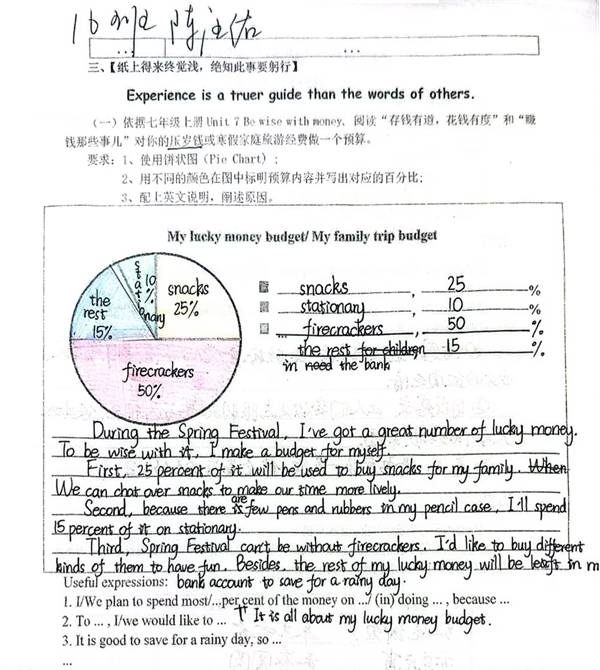 16班 陈注佑
… …
三、【纸上得来终觉浅，绝知此事要躬行】
Experience is a truer guide than the words of others.
（一）依据七年级上册 Unit 7 Be wise with money, 阅读“存钱有道，花钱有度”和“赚
钱那些事儿”对你的压岁钱或寒假家庭旅游经费做一个预算。
要求：1、使用饼状图（Pie Chart）；
2、用不同的颜色在图中标明预算内容并写出对应的百分比；
3、配上英文说明，阐述原因。
My lucky money budget/ My family trip budget
stationary 10%
snacks 25%
the rest 15%
firecrackers 50%
snacks , 25 %
stationary , 10 %
... firecrackers , 50 %
the rest for children 15 %
in need the bank
During the Spring Festival, I've got a great number of lucky money.
To be wise with it, I make a budget for myself.
First, 25 percent of it will be used to buy snacks for my family. When
We can chat over snacks to make our time more lively.
Second, because there is are few pens and rubbers in my pencil case, I'll spend
15 percent of it on stationary.
Third, Spring Festival can't be without firecrackers. I'd like to buy different
kinds of them to have fun. Besides, the rest of my lucky money will be left in m
Useful expressions: bank account to save for a rainy day.
1. I/We plan to spend most/...per cent of the money on .../ (in) doing ... , because ...
2. To ... , I/we would like to ... It is all about my lucky money budget.
3. It is good to save for a rainy day, so ...
...